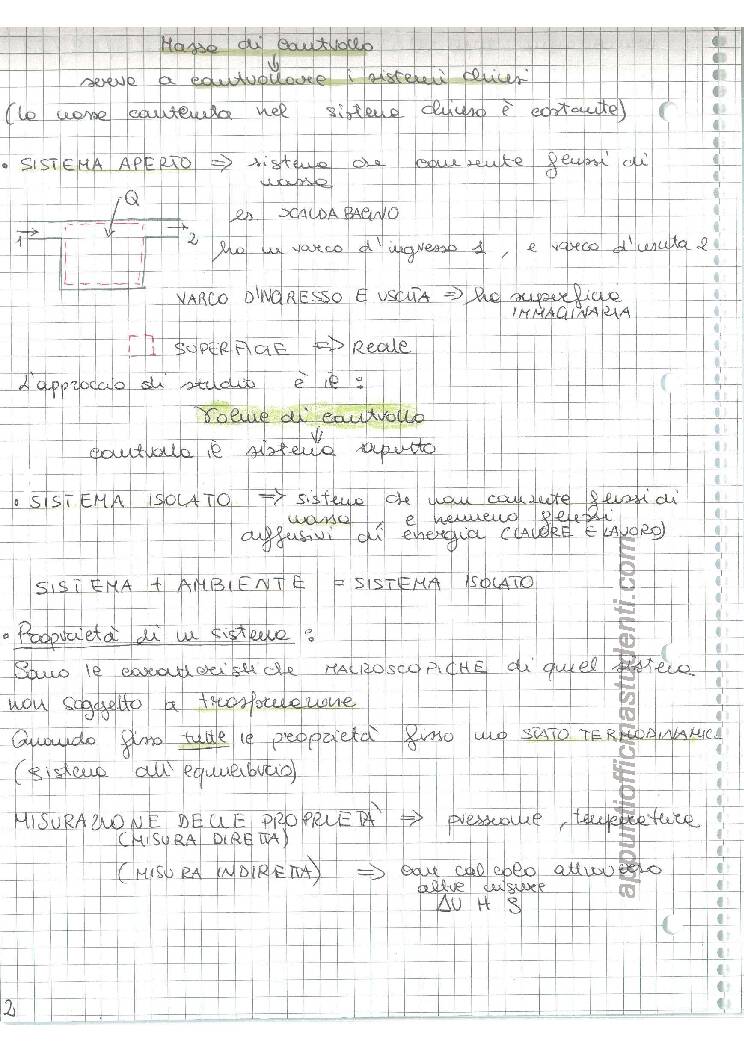 Massa di controllo
↓
serve a controllare i sistemi chiusi
(la massa contenuta nel sistema chiuso è costante)
• SISTEMA APERTO ⇒ sistema che consente flussi di
massa
Q
es SCALDABAGNO
1 → → 2
ho un varco d'ingresso 1, e varco d'uscita 2
VARCO D'INGRESSO E USCITA ⇒ ha superficie
IMMAGINARIA
SUPERFICIE ⇒ Reale
L'approccio di studio è il:
Volume di controllo
↓
controlla il sistema aperto
• SISTEMA ISOLATO ⇒ sistema che non consente flussi di
massa, e nemmeno flussi
diffusivi di energia (CALORE E LAVORO)
SISTEMA + AMBIENTE = SISTEMA ISOLATO
• Proprietà di un sistema:
Sono le caratteristiche MACROSCOPICHE di quel sistema
non soggetto a trasformazione
Quando fisso tutte le proprietà fisso uno STATO TERMODINAMIC
(sistema all'equilibrio)
MISURAZIONE DELLE PROPRIETÀ ⇒ pressione, temperatura
(MISURA DIRETTA)
(MISURA INDIRETTA) ⇒ con calcolo attraverso
altre misure
ΔU H S
2
appuntiofficinastudenti.com